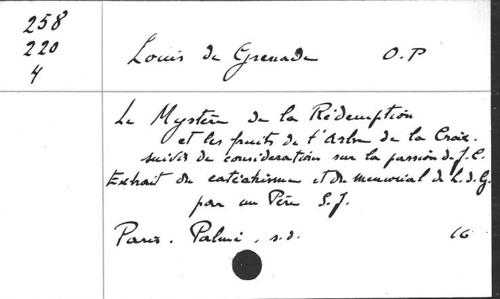 258
220
4
Louis de Grenade O.P
Le Mystère de la Rédemption
et les fruits de l'Arbre de la Croix.
suivis de considerations sur la passion de J.C.
Extrait du catéchisme et du memorial de L.d.G.
par un Père S.J.
Paris. Palmé, s.d. 16